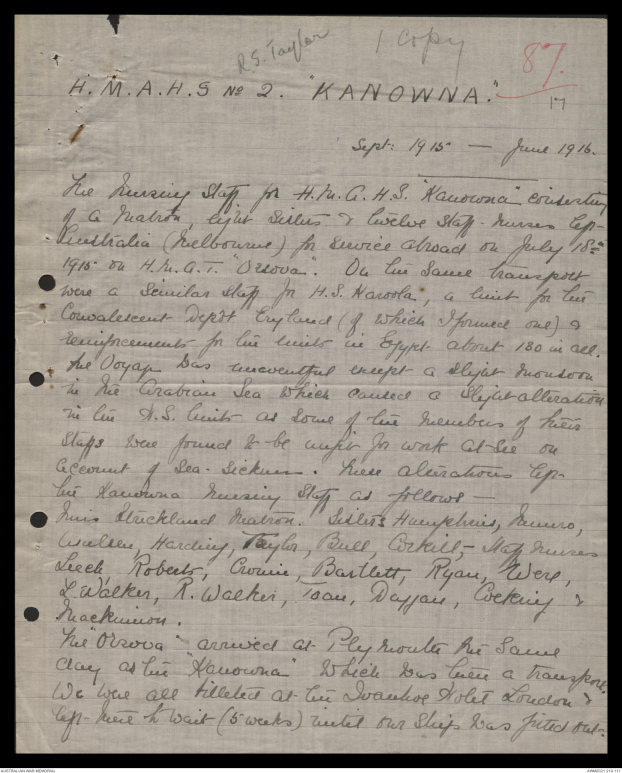 R.S. Taylor
1 Copy
87.
17
H.M.A.H.S No 2. "KANOWNA."
Sept: 1915 — June 1916.
The Nursing Staff for H.M.A.H.S. "Kanowna" consisting
of a Matron, eight Sisters & twelve Staff-Nurses left
Australia (Melbourne) for service abroad on July 18th
1915 on H.M.A.T. "Orsova". On the same transport
were a similar staff for H.S. Karoola, a unit for the
Convalescent Depôt England (of which I formed one) &
reinforcements for the units in Egypt about 130 in all.
The Voyage was uneventful except a slight monsoon
in the Arabian Sea which caused a slight alteration
in the H.S. Units as some of the members of their
Staffs were found to be unfit for work at Sea on
account of Sea-Sickness. These alterations left
the Kanowna Nursing Staff as follows —
Miss Strickland Matron. Sisters Humphries, Munro,
Harding, Taylor, Bull, Corkill, — Staff Nurses
Leech, Roberts, Cronin, Bartlett, Ryan, Were,
L. Walker, R. Walker, Cocking &
Mackinnon.
The "Orsova" arrived at Plymouth the same
day as the "Kanowna" which was then a transport.
We were all billeted at the Ivanhoe Hotel London &
left there to wait (5 weeks) until our Ship was fitted out.
AUSTRALIAN WAR MEMORIAL